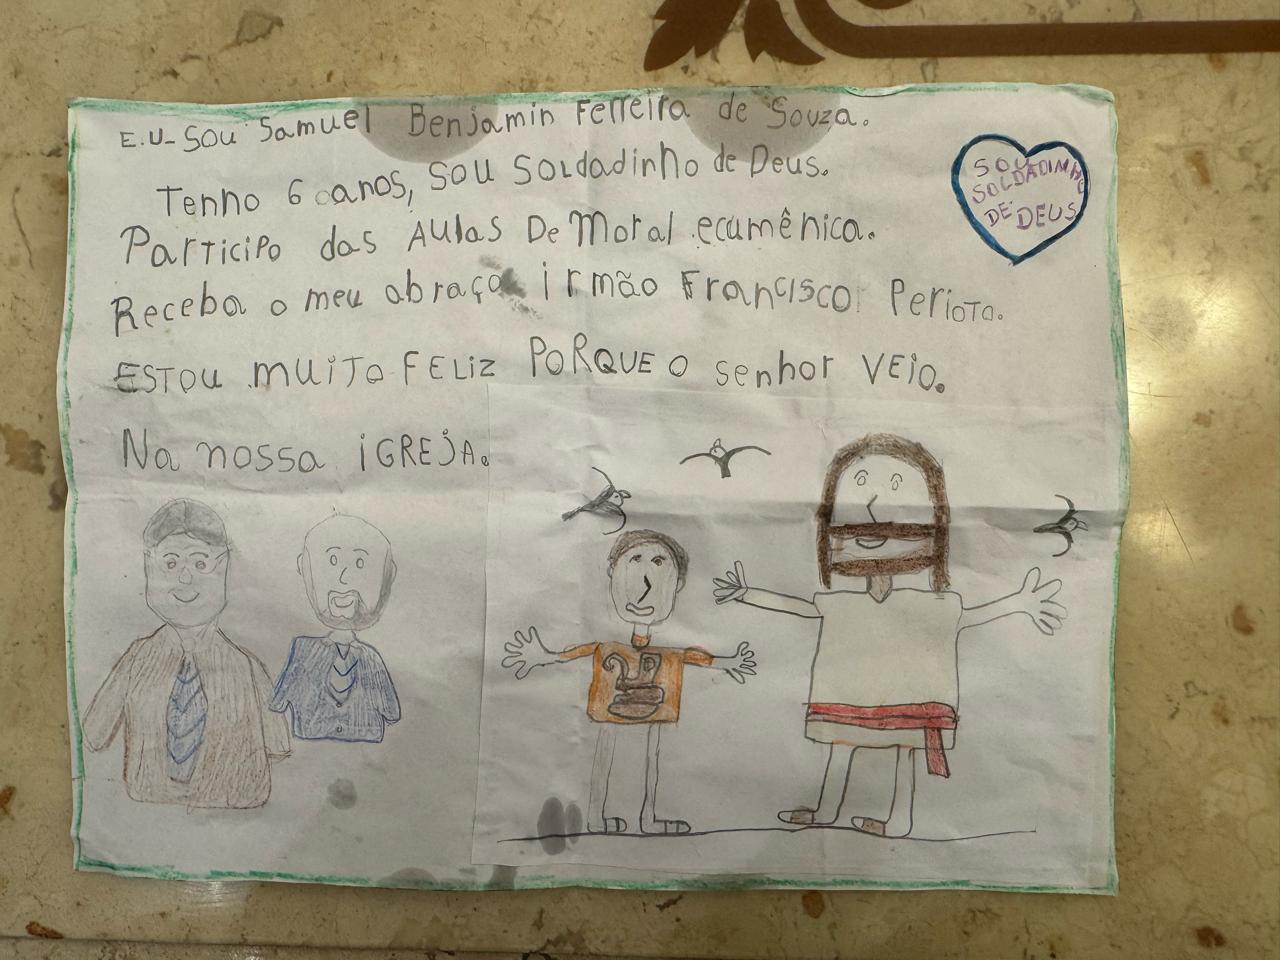 E.U- Sou Samuel Benjamin Ferreira de Souza.
Tenho 6 anos, sou Soldadinho de Deus.
Participo das Aulas De Moral ecumênica.
Receba o meu abraço irmão Francisco Perioto.
ESTOU MUITO FELIZ PORQUE O senhor VEIO.
Na nossa IGREJA.
SOU
SOLDADINHO
DE DEUS